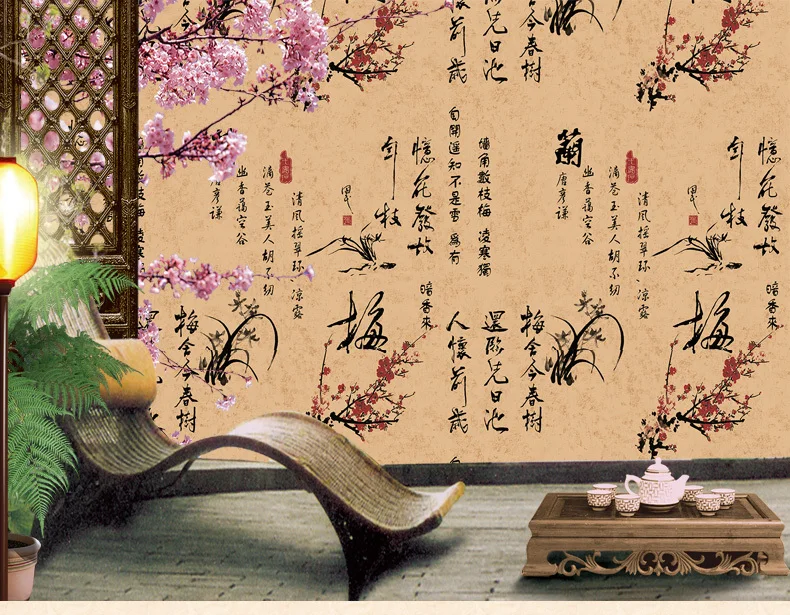 憶花發故
年枝
暗香來
梅
清風摇翠環 凉露
滴蒼玉美人胡不紉
幽香藹空谷
唐彦謙
蘭
舍今春樹
臨先日池
人懷前歲
牆角數枝梅 凌寒獨
自開遥知不是雪 爲有
梅含今春樹
還臨先日池
人懷前歲
憶花發故
年枝
暗香來
梅
清風摇翠環 凉露
滴蒼玉美人胡不紉
幽香藹空谷
唐彦謙
梅含今春樹
還
數枝梅 凌寒